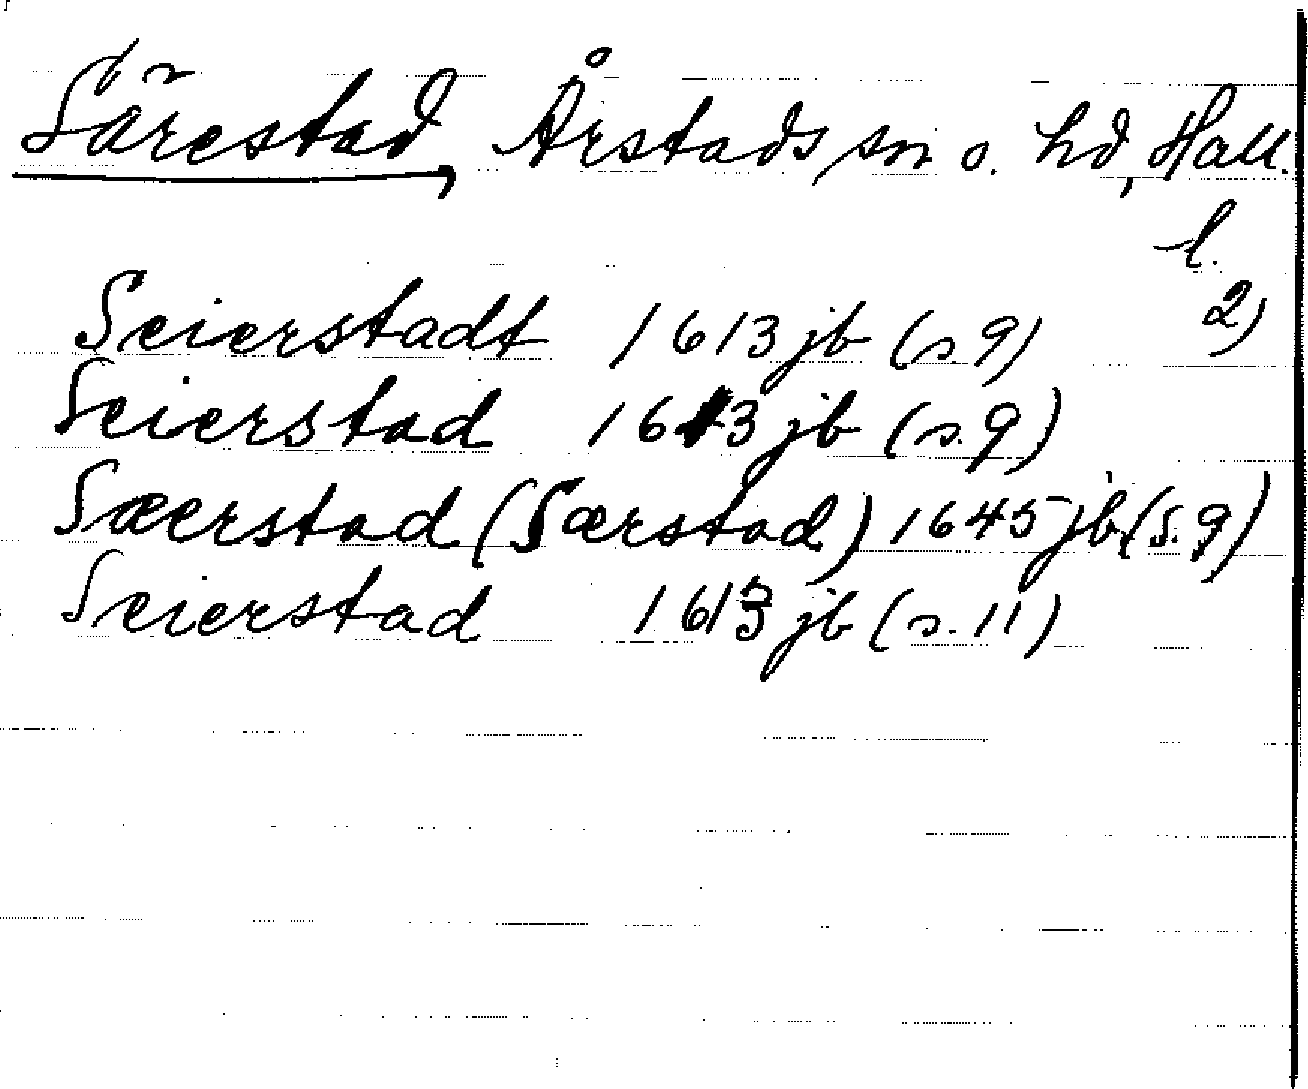 Särestad, Årstads sn o. hd, Hall.
l.
2)
Seierstadt 1613 jb (s 9)
Seierstad 1613 jb (s. 9)
Sæerstad (Særstad) 1645 jb (s. 9)
Seierstad 1613 jb (s. 11)